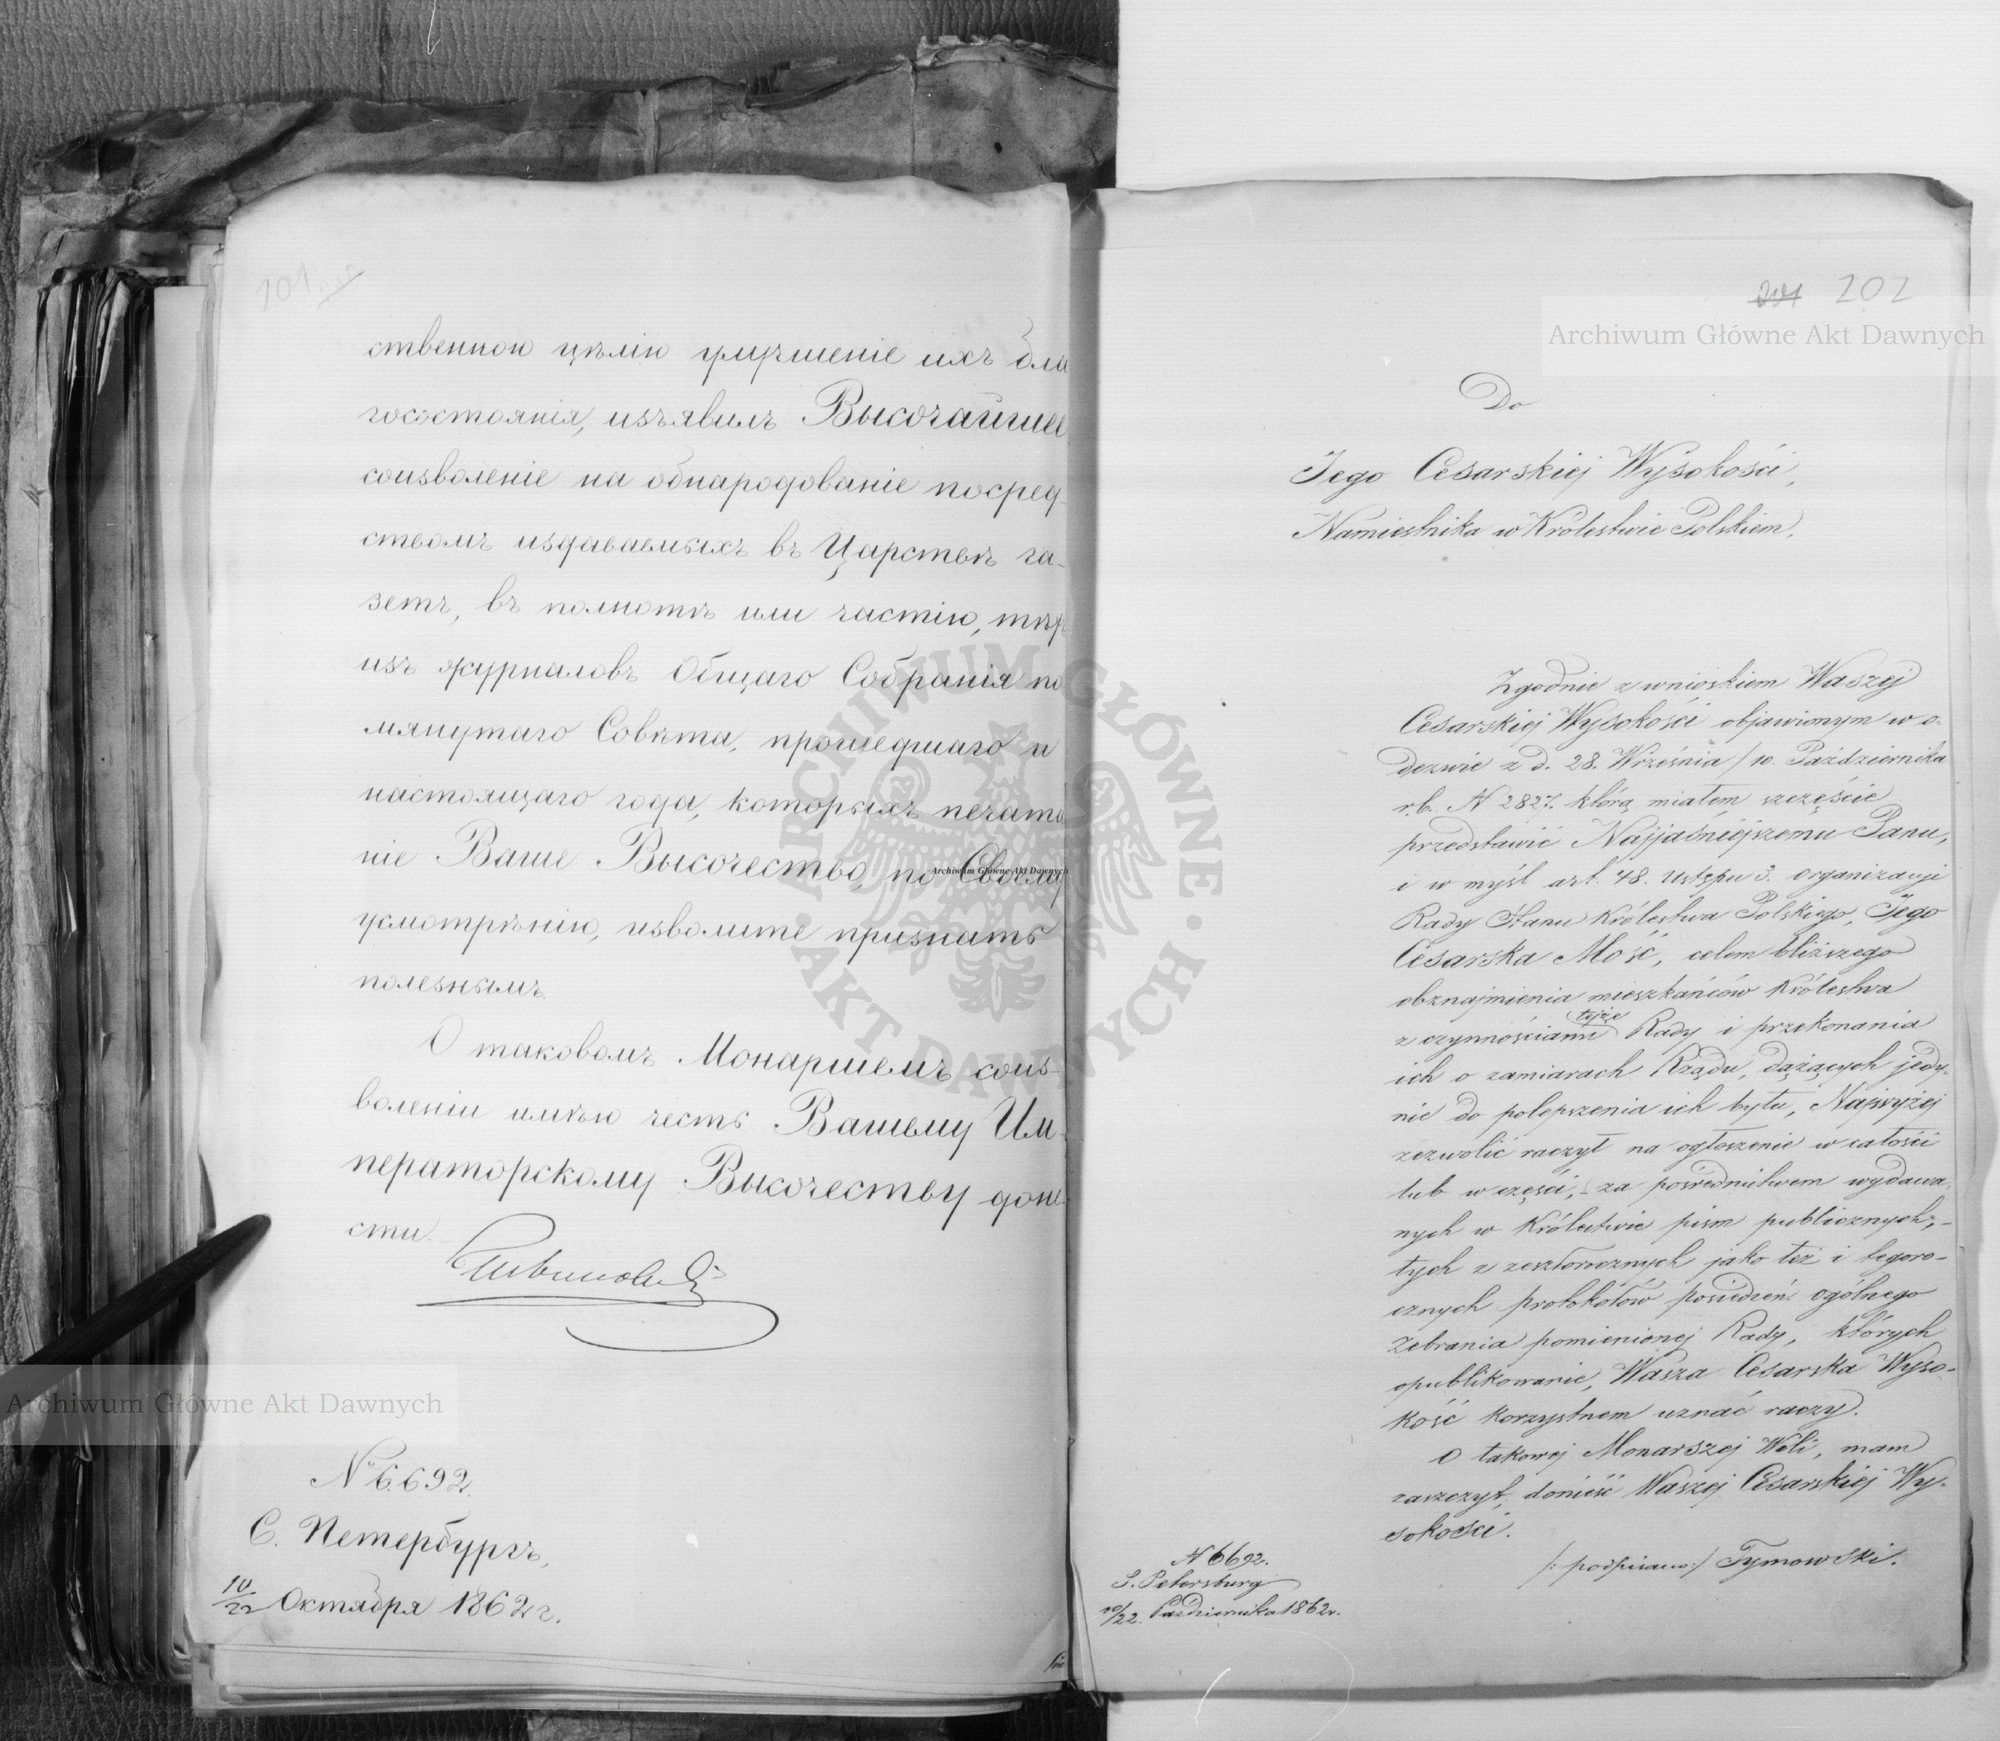 201
ственною цѣлію улучшеніе ихъ бла
госостоянія, изъявилъ Высочайшее
соизволеніе на обнародованіе посред-
ствомъ издаваемыхъ въ Царствѣ га-
зетъ, въ полнотѣ или частію, тѣхъ
изъ журналовъ Общаго Собранія по
мянутаго Совѣта, прошедшаго и
настоящаго года, которыхъ печата
ніе Ваше Высочество, по Своему
усмотрѣнію, изволите признать
полезнымъ.
О таковомъ Монаршемъ соиз-
воленіи имѣю честь Вашему Им-
ператорскому Высочеству доне
сти.
№ 6.692.
С. Петербургъ,
10/22 Октября 1862 г.
202
Do
Jego Cesarskiej Wysokości,
Namiestnika w Królestwie Polskiem.
Zgodnie z wnioskiem Waszej
Cesarskiej Wysokości objawionym w o-
dezwie z d. 28. Września / 10. Października
r.b. N 2827. którą miałem szczęście
przedstawić Najjaśniejszemu Panu,
i w myśl art. 48. Ustępu 3. organizacji
Rady Stanu Królestwa Polskiego, Jego
Cesarska Mość, celem bliższego
obznajmienia mieszkańców Królestwa
z czynnościami tejże Rady i przekonania
ich o zamiarach Rządu, dążących jedy-
nie do polepszenia ich bytu, Najwyżej
zezwolić raczył na ogłoszenie w całości
lub w części, za pośrednictwem wydawa-
nych w Królestwie pism publicznych, -
tych z zeszłorocznych jako też i tegoro-
cznych protokołów posiedzeń ogólnego
Zebrania pomienionej Rady, których
opublikowanie, Wasza Cesarska Wyso-
kość korzystnem uznać raczy.
O takowej Monarszej Woli, mam
zaszczyt, donieść Waszej Cesarskiej Wy-
sokości.
/: podpisano :/ Tymowski.
N 6692.
S. Petersburg
10/22. Października 1862 r.
Archiwum Główne Akt Dawnych
Archiwum Główne Akt Dawnych
Archiwum Główne Akt Dawnych
ARCHIWUM GŁÓWNE · AKT DAWNYCH ·